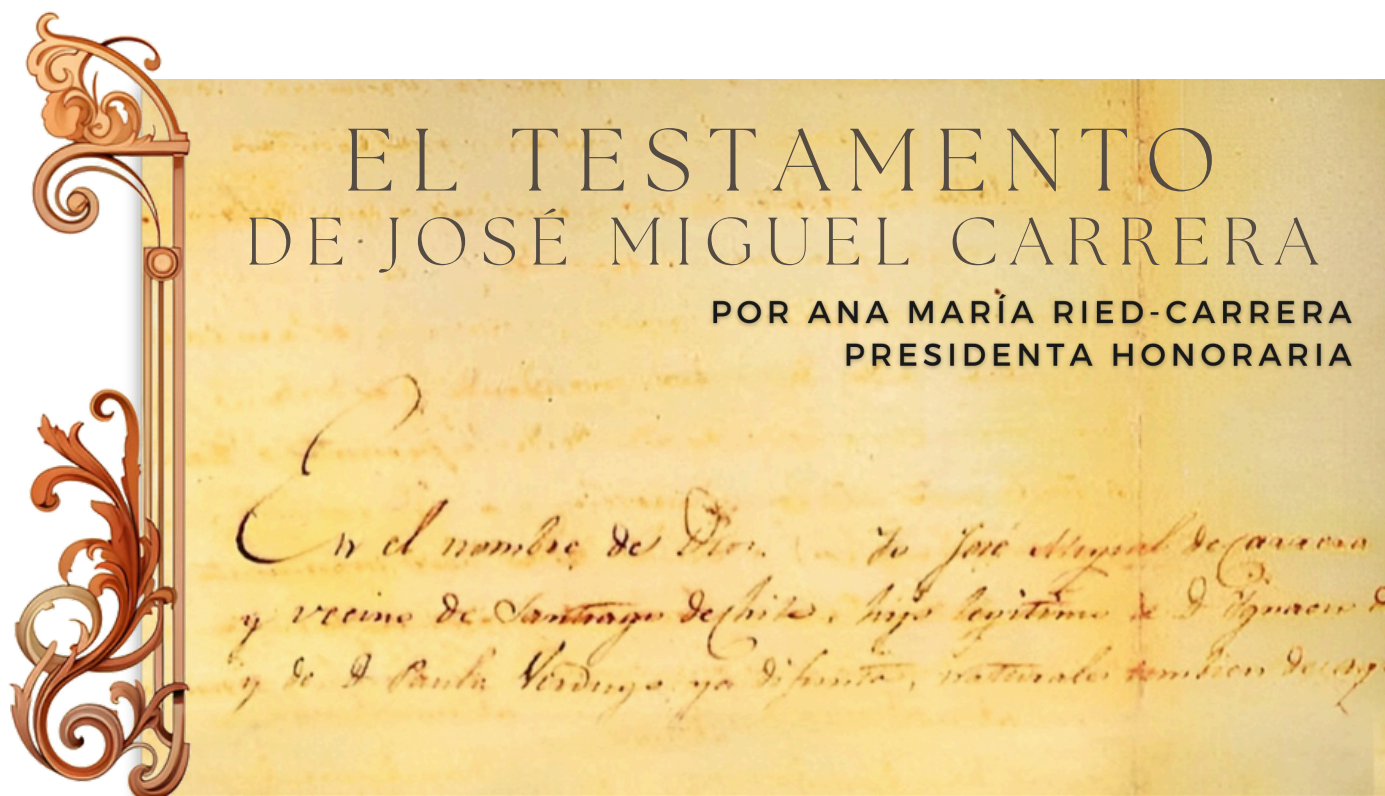 EL TESTAMENTO
DE JOSÉ MIGUEL CARRERA
POR ANA MARÍA RIED-CARRERA
PRESIDENTA HONORARIA
En el nombre de Dios. Yo José Miguel de Carrera
y vecino de Santiago de Chile, hijo legitimo de D. Ygnacio d
y de D. Paula Verdugo ya difunta, naturales tambien de